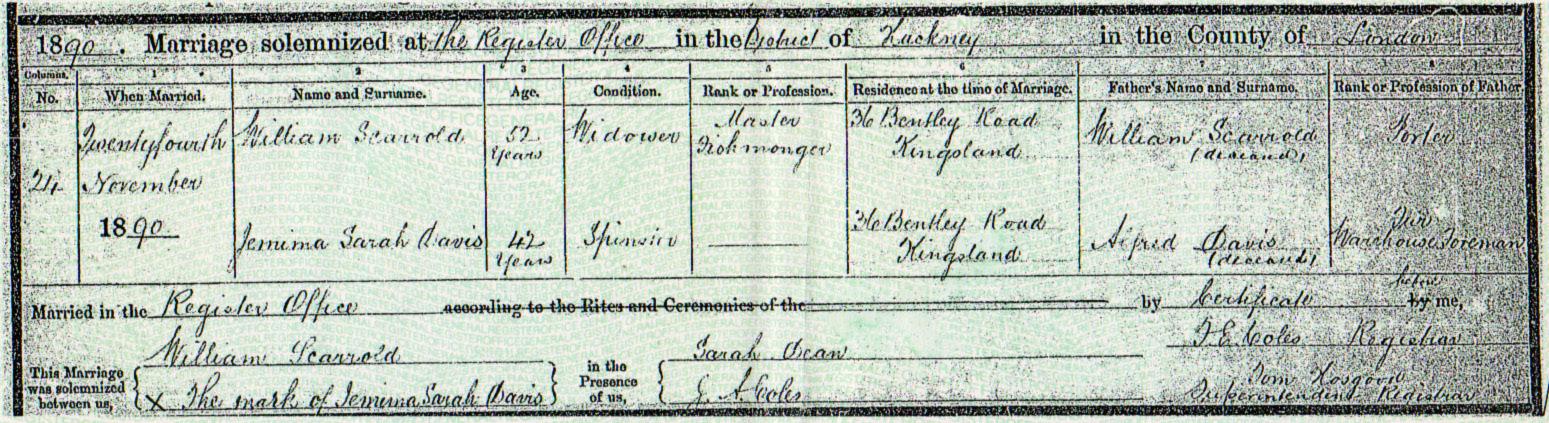 1890. Marriage solemnized at the Register Office in the District of Hackney in the County of London
Columns. 1 2 3 4 5 6 7 8
No. When Married. Name and Surname. Age. Condition. Rank or Profession. Residence at the time of Marriage. Father's Name and Surname. Rank or Profession of Father.
24 Twentyfourth November 1890
William Scarrold 52 Years Widower Master Fishmonger 36 Bentley Road Kingsland William Scarrold (deceased) Porter
Jemima Sarah Davis 42 Years Spinster 36 Bentley Road Kingsland Alfred Davis (deceased) Fur Warehouse Foreman
Married in the Register Office according to the Rites and Ceremonies of the by Certificate before by me,
This Marriage was solemnized between us,
William Scarrold
X The mark of Jemima Sarah Davis
in the Presence of us,
Sarah Dean
J. A. Coles
Coles Registrar
Tom Hosgood
Superintendent Registrar